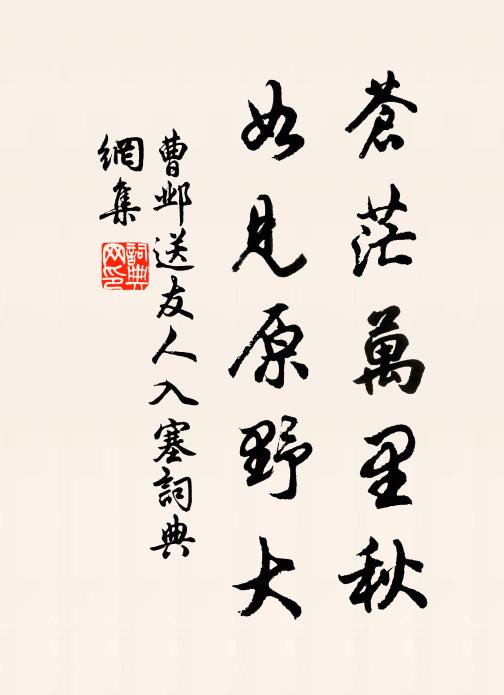 蒼茫萬里秋
如見原野大
曹邺送友人入塞詞典
網集
詞典
网印